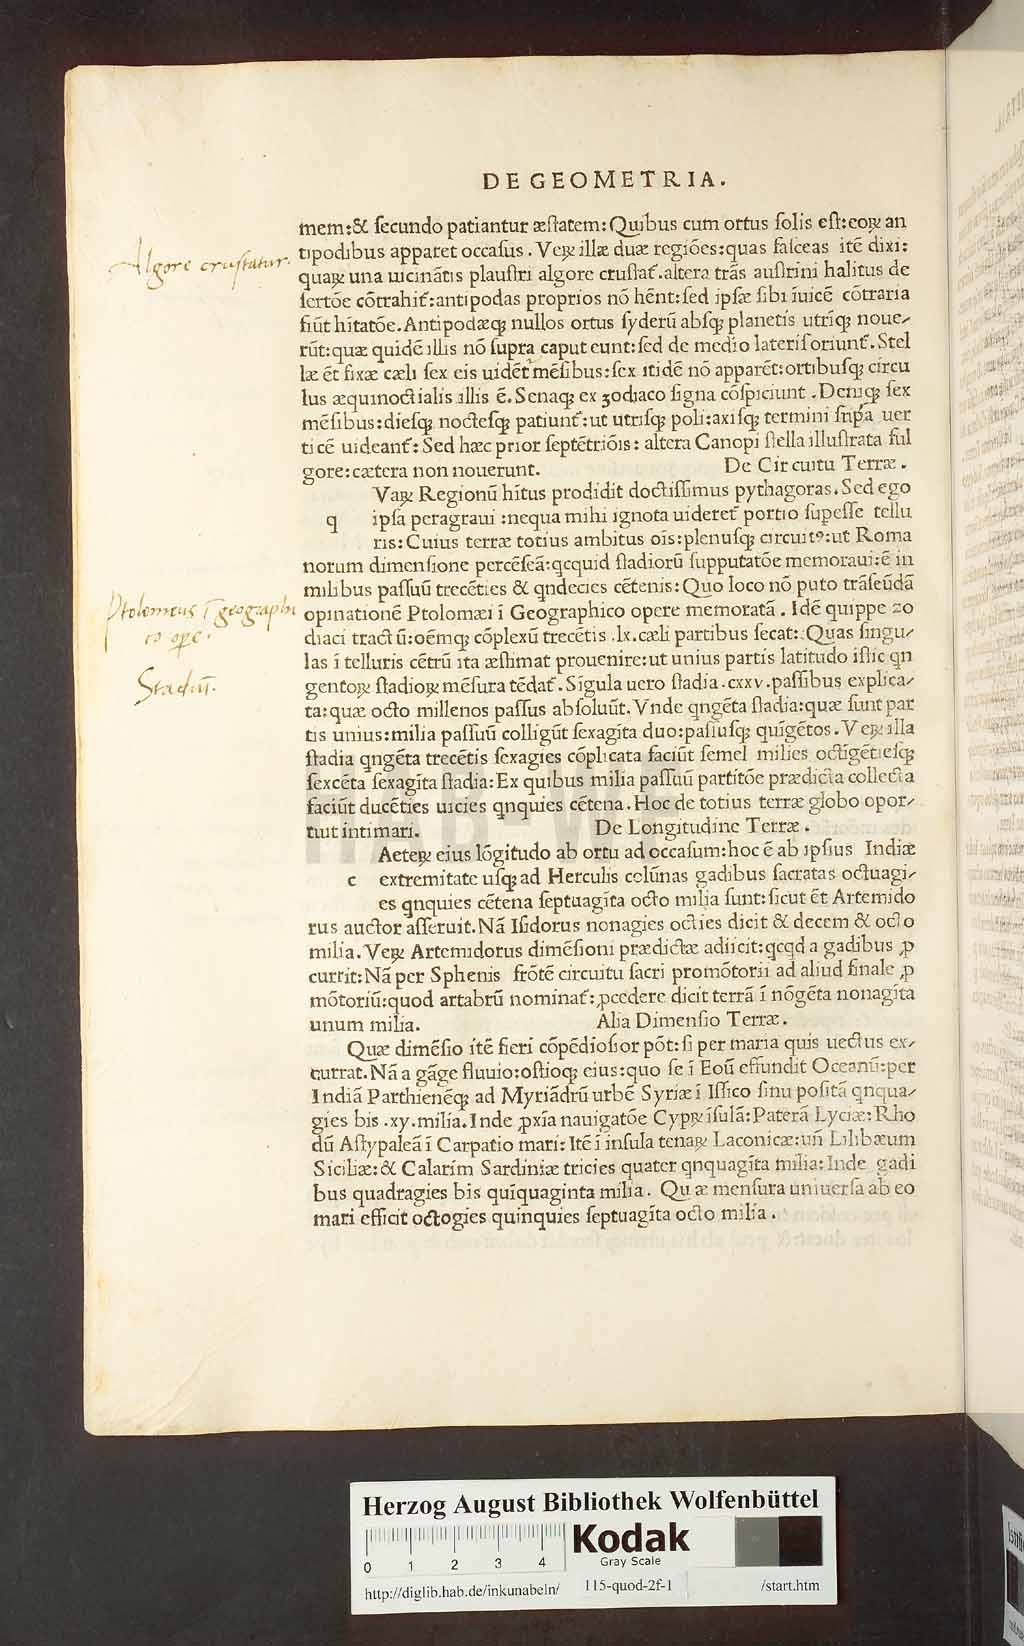 DE GEOMETRIA.
mem:& ſecundo patiantur æſtatem: Quibus cum ortus ſolis eſt: eoꝝ an
tipodibus apparet occaſus. Veꝝ illæ duæ regiões: quas faſceas itē dixi:
quaꝝ una uicināt́is plauſtri algore cruſtat̄. altera trās auſtrini halitus de
ſertōe cōtrahit̄: antipodas proprios nō hēnt: ſed ipſæ ſibi īuicē cōtraria
fiūt hītatōe. Antipodæqꝫ nullos ortus ſyderū abſqꝫ planetis utrīqꝫ noue⸗
rūt: quæ quidē illis nō ſupra caput eunt: ſed de medio lateri ſoriunt̄. Stel
læ ēt fixæ cæli ſex eis uidēt̄ mēſibus: ſex itidē nō apparēt: ortibuſqꝫ circu
lus æquinoctialis illis ē. Senaqꝫ ex ʒodiaco ſigna cōſpiciunt. Deniqꝫ ſex
mēſibus: dieſqꝫ nocteſqꝫ patiunt̄: ut utriſqꝫ poli: axiſqꝫ termini ſupra uer
ticē uideant̄: Sed hæc prior ſeptētriōis: altera Canopi ſtella illuſtrata ful
gore: cætera non nouerunt. De Circuitu Terræ.
Vaꝝ Regionū hītus prodidit doctiſſimus pythagoras. Sed ego
q ipſa peragraui: nequa mihi ignota uideret̄ portio ſupeſſe tellu
ris: Cuius terræ totius ambitus oīs: plenuſqꝫ circuitꝰ: ut Roma
norum dimenſione percēſeā: qcquid ſtadiorū ſupputatōe memoraui: ē in
milibus paſſuū trecēties & qndecies cētenis: Quo loco nō puto trāſeūdā
opinationē Ptolomæi ī Geographico opere memoratā. Idē quippe zo
diaci tractū: oēmqꝫ cōplexū trecētis .lx. cæli partibus ſecat: Quas ſingu⸗
las ī telluris cētrū ita æſtimat prouenire: ut unius partis latitudo iſtic qn
gentoꝝ ſtadioꝝ mēſura tēdat̄. Sīgula uero ſtadia .cxxv. paſſibus explica⸗
ta: quæ octo millenos paſſus abſoluūt. Vnde qngēta ſtadia: quæ ſunt par
tis unius: milia paſſuū colligūt ſexagīta duo: paſſuſqꝫ quīgētos. Veꝝ illa
ſtadia qngēta trecētis ſexagies cōplicata faciūt ſemel milies octīgētieſqꝫ
ſexcēta ſexagīta ſtadia: Ex quibus milia paſſuū partitōe prædicta collecta
faciūt ducēties uicies qnquies cētena. Hoc de totius terræ globo opor⸗
tuit intimari. De Longitudine Terræ.
Aeteꝝ eius lōgitudo ab ortu ad occaſum: hoc ē ab ipſius Indiæ
c extremitate uſqꝫ ad Herculis colūnas gadibus ſacratas octuagi⸗
es qnquies cētena ſeptuagīta octo milia ſunt: ſicut ēt Artemido
rus auctor aſſeruit. Nā Iſidorus nonagies octies dicit & decem & octo
milia. Veꝝ Artemidorus dimēſioni prædictæ adiicit: qcqd a gadibus ꝓ
currit: Nā per Sphenis frōtē circuitu ſacri promōtorii ad aliud finale ꝓ
mōtoriū: quod artabrū nominat̄: ꝓcedere dicit terrā ī nōgēta nonagīta
unum milia. Alia Dimenſio Terræ.
Quæ dimēſio itē fieri cōpēdioſior pōt: ſi per maria quis uectus ex⸗
currat. Nā a gāge fluuio: oſtioqꝫ eius: quo ſe ī Eoū effundit Oceanū: per
Indiā Parthienēqꝫ ad Myriādrū urbē Syriæ ī Iſſico ſinu poſitā qnqua⸗
gies bis .xy. milia. Inde ꝓxīa nauigatōe Cypꝝ īſulā: Paterā Lyciæ: Rho
dū Aſtypaleā ī Carpatio mari: Itē ī inſula tenaꝝ Laconicæ: uñ Lilibæum
Siciliæ: & Calarīm Sardiniæ tricies quater qnquagīta milia: Inde gadi
bus quadragies bis quīquaginta milia. Quæ menſura uniuerſa ab eo
mari efficit octogies quinquies ſeptuagīta octo milia.
Algore cruſtatur.
Ptolomeus ī geographi
co opē.
Stadiū.
HAB-WF
Herzog August Bibliothek Wolfenbüttel
0 1 2 3 4
Kodak
Gray Scale
http://diglib.hab.de/inkunabeln/ 115-quod-2f-1 /start.htm